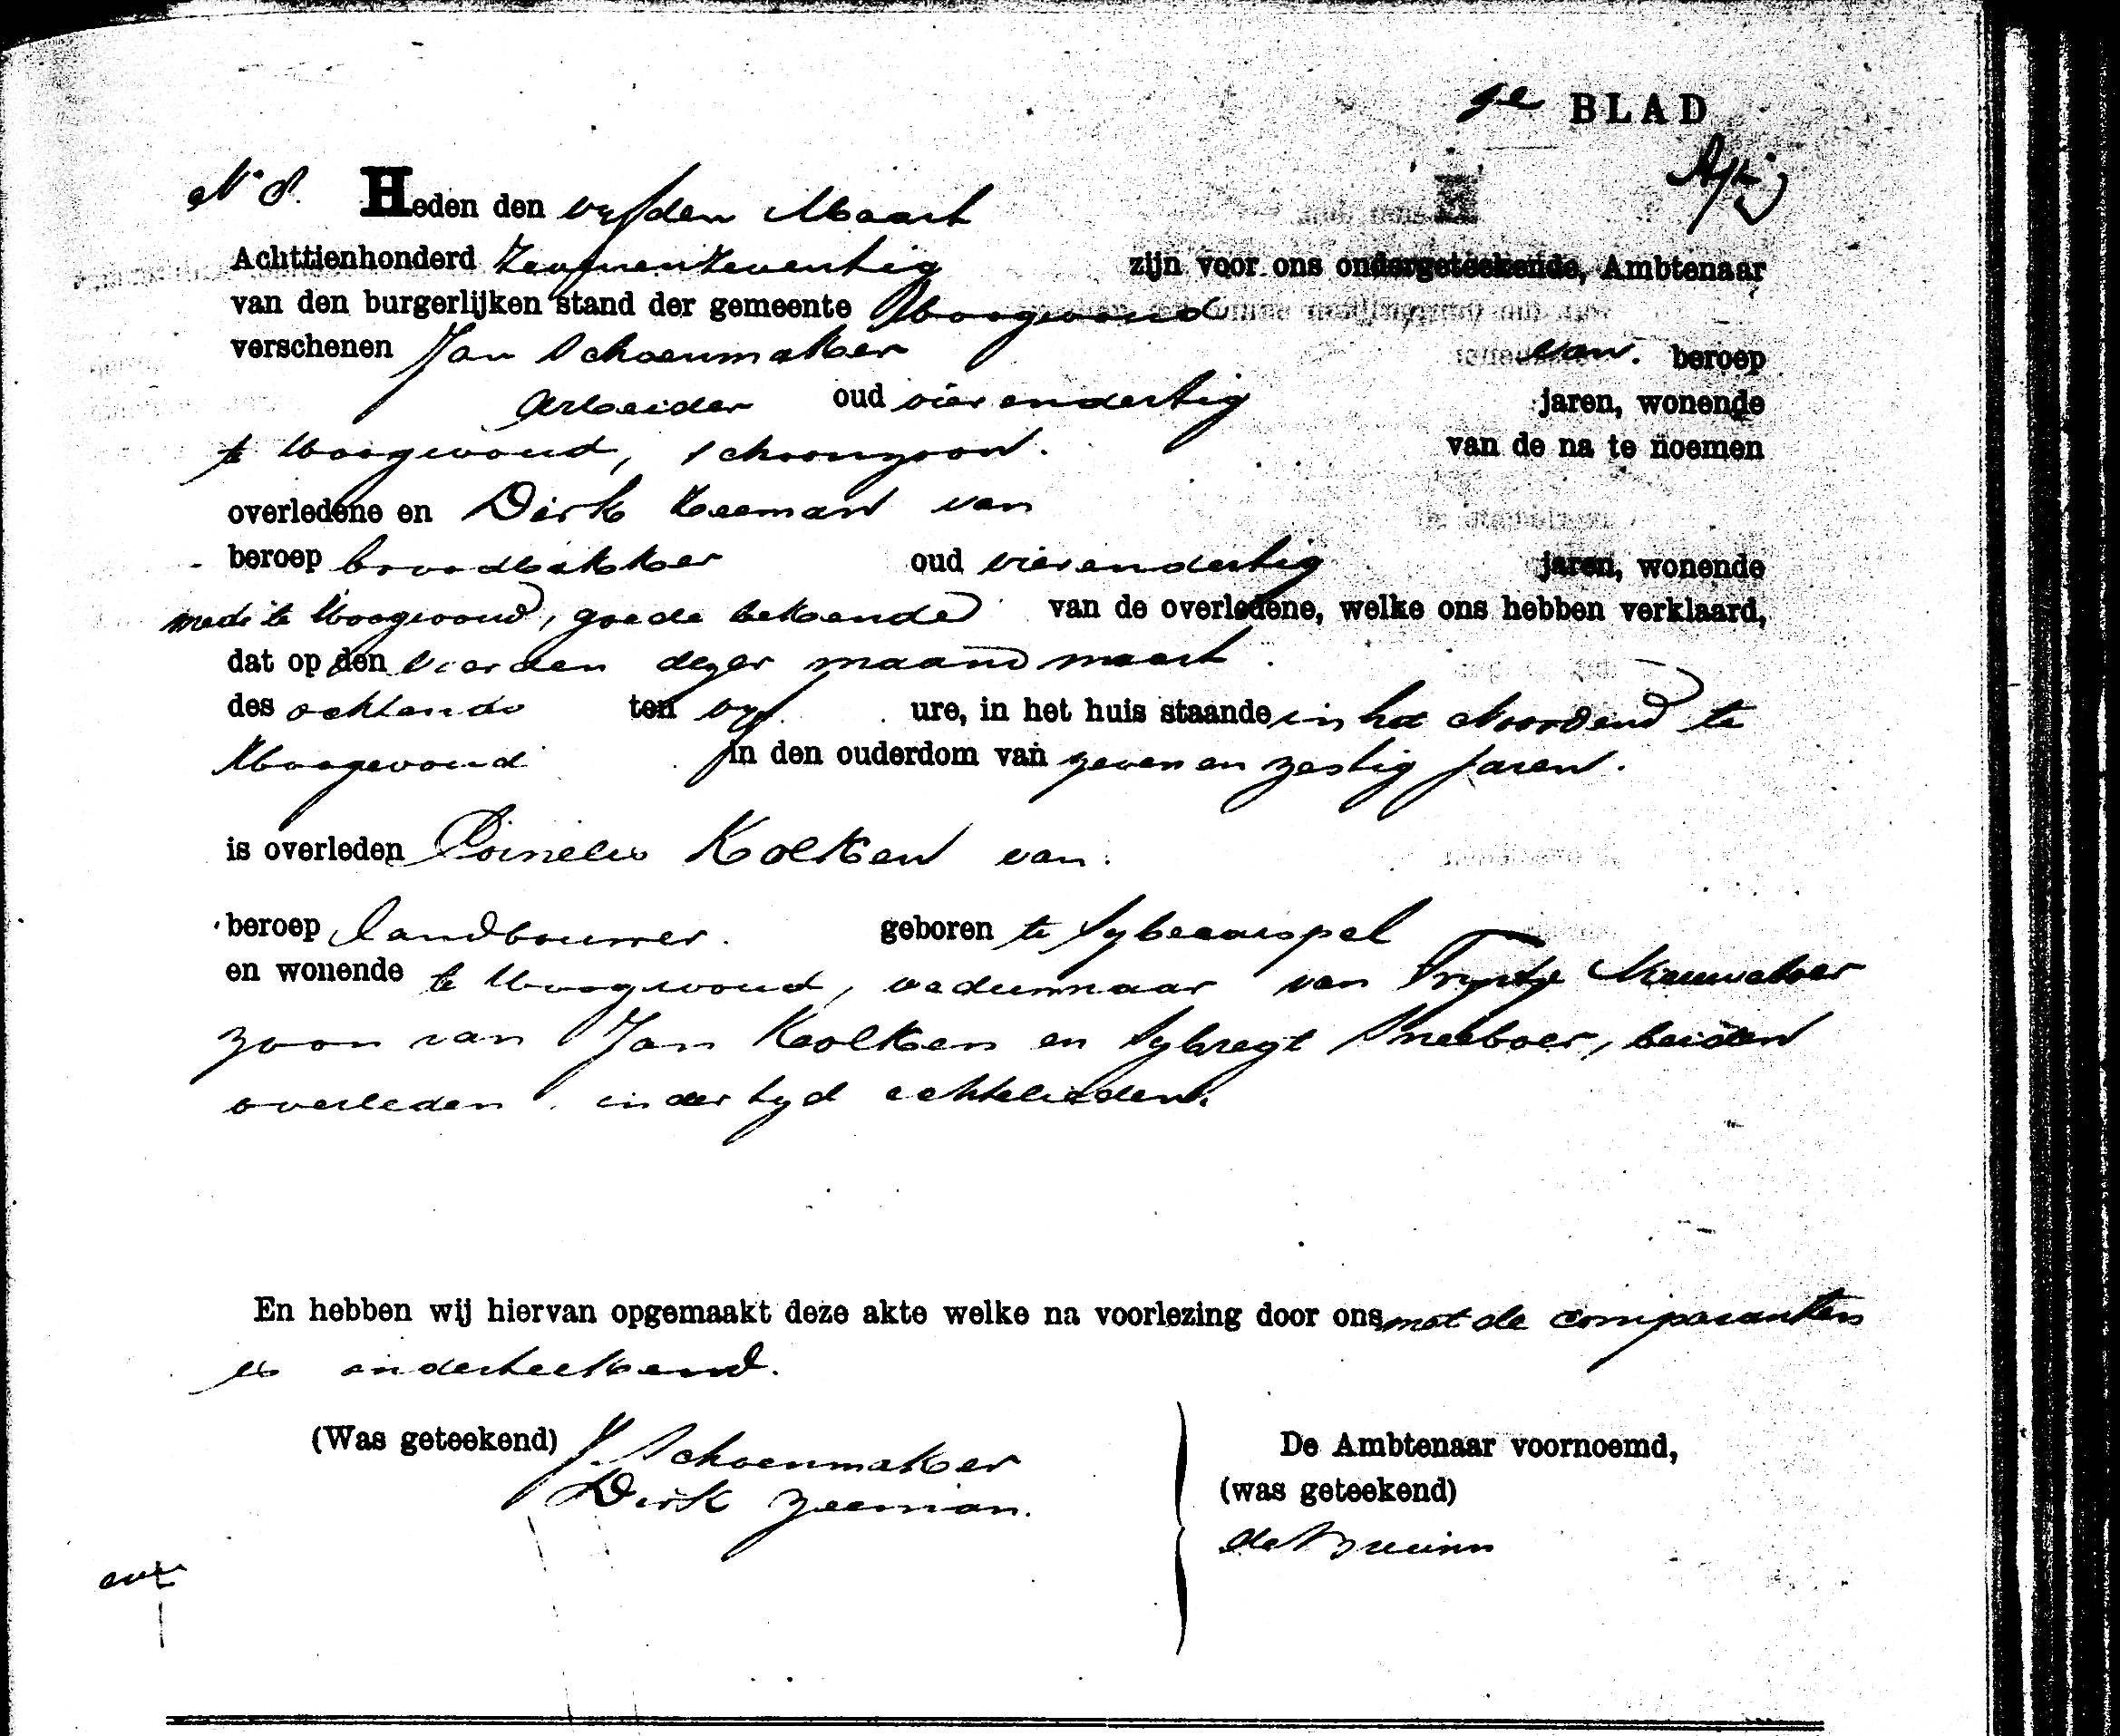 9e BLAD
No 8. Heden den vyfden Maart
Achttienhonderd zevenenzeventig zijn voor ons ondergeteekende, Ambtenaar
van den burgerlijken stand der gemeente Hoogwoud
verschenen Jan Schoenmaker van beroep
Arbeider oud vierendertig jaren, wonende
te Hoogwoud, schoonzoon van de na te noemen
overledene en Dirk Zeeman van
beroep broodbakker oud vierendertig jaren, wonende
mede te Hoogwoud, goede bekende van de overledene, welke ons hebben verklaard,
dat op den vierden dezer maand maart
des ochtends ten vyf ure, in het huis staande in het Noordend te
Hoogwoud in den ouderdom van zevenenzestig jaren.
is overleden Cornelis Kolken van
beroep landbouwer. geboren te Sybecarspel
en wonende te Hoogwoud, weduwnaar van Tryntje
zoon van Jan Kolken en Sybregt Sneeboer, beiden
overleden in der tyd echtelieden.
En hebben wij hiervan opgemaakt deze akte welke na voorlezing door ons met de comparanten
is onderteekend.
(Was geteekend) J. Schoenmaker
Dirk Zeeman.
De Ambtenaar voornoemd,
(was geteekend)
de Bruin